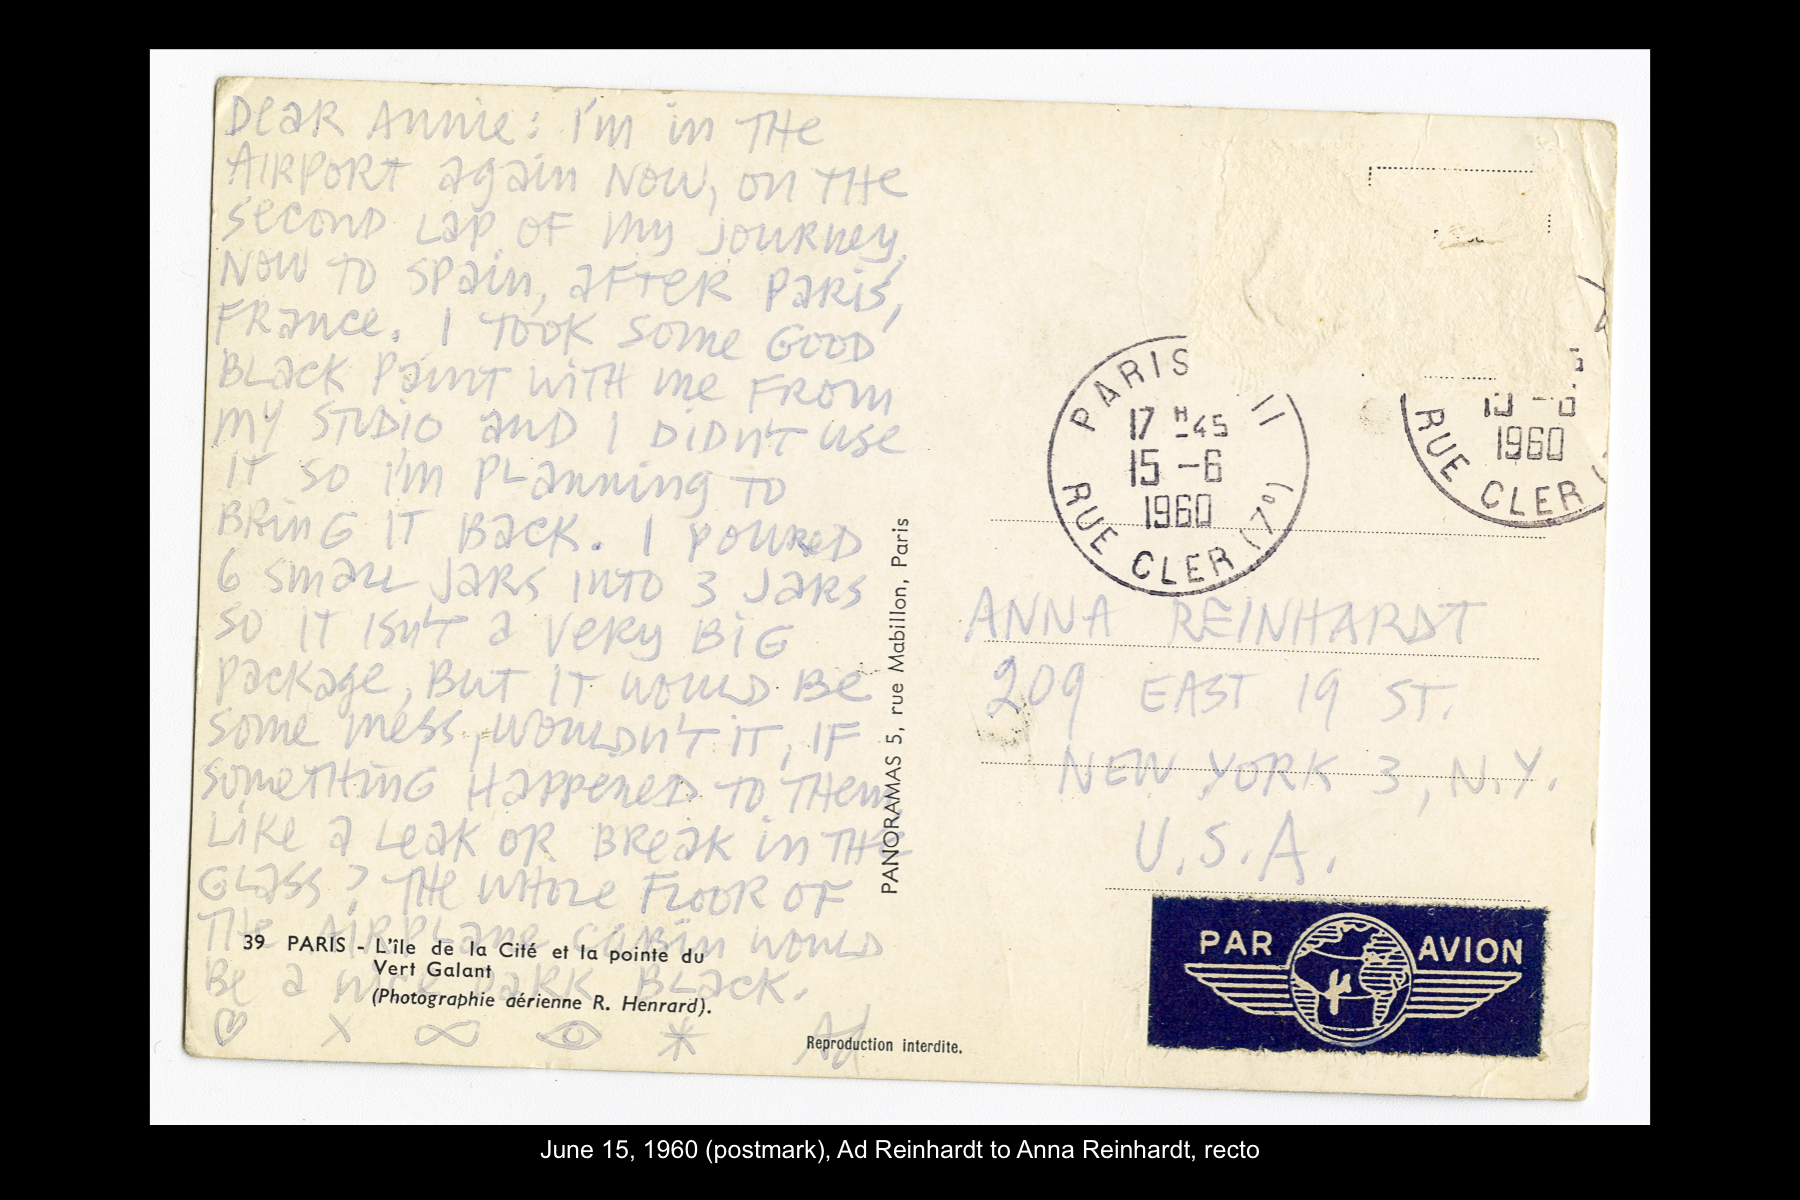 Dear Annie: I'm in THE
AIRPORT again NOW, on THE
second LAP OF my journey,
NOW TO SPain, AFTER PARIS,
FRance. I TOOK some GOOD
BLACK Paint WITH me FROM
my STUDIO and I DIDN'T use
IT SO I'm PLanning TO
BRING IT Back. I POURED
6 small JARS INTO 3 JARS
SO IT ISn'T a very BIG
package, BUT IT WOULD Be
some mess, WOULDN'T IT, IF
SomeTHING Happened TO THem,
Like a Leak OR BReak in THE
GLASS? THE WHOLE FLOOR OF
THE AIRPLane CaBin WOULD
Be a nice DARK BLACK.
♡ x ∞ 👁 * Ad
39 PARIS - L'île de la Cité et la pointe du
Vert Galant
(Photographie aérienne R. Henrard).
Reproduction interdite.
PANORAMAS 5, rue Mabillon, Paris
PARIS II
17 H -45
15 -6
1960
RUE CLER (7e)
15 -6
1960
RUE CLER
ANNA REINHARDT
209 EAST 19 ST.
NEW YORK 3, N.Y.
U.S.A.
PAR AVION
June 15, 1960 (postmark), Ad Reinhardt to Anna Reinhardt, recto